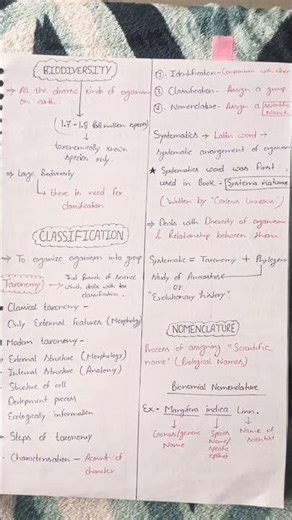 BIODIVERSITY
→ All the diverse kinds of organism on earth.
(1.7 - 1.8 million species)
↓
taxonomically known
species only.
→ Large Biodiversity
↳ there is need for
classification
CLASSIFICATION
→ To organize organism into group
Taxonomy → That Branch of science
which deals with the
classification.
• Classical taxonomy -
Only External Features (Morphology)
• Modern taxonomy -
→ External Structure (Morphology)
• Internal Structure (Anatomy)
Structure of cell
Development process
Ecologically information
• Steps of taxonomy
• Characterisation - Account of
character
② Identification - Comparison with other
③ Classification - Assign a group
④ Nomenclature - Assign a scientific
Name
Systematics → Latin word →
systematic arrangement of organism
★ Systematics word was first
used in Book - Systema Naturae
(Written by "Carolus Linnaeus")
→ Deals with Diversity of organism
& Relationship between them
Systematic = Taxonomy + Phylogeny
Study of Ancestors
or
"Evolutionary history"
NOMENCLATURE
Process of assigning "Scientific
name" (Biological Names)
Binomial Nomenclature
Ex - Mangifera indica Linn.
Genus/generic
Name
Species
Name/
specific
epithet
Name of
scientist